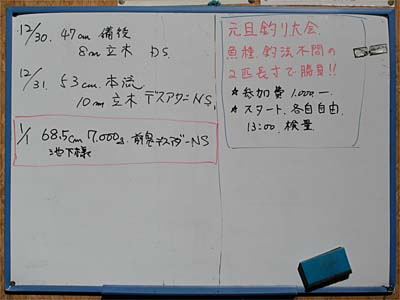 12/30. 47cm 備後
8m 立木 DS.
12/31. 53cm. 本流
10m 立木 デスアダーNS.
1/1 68.5cm 7.000g. 前鬼 デスアダーNS
池下様
元旦釣り大会.
魚種. 釣法不問の
2匹長寸で勝負!!
★ 参加費 1.000.ー
★ スタート. 各自自由.
13:00. 検量.